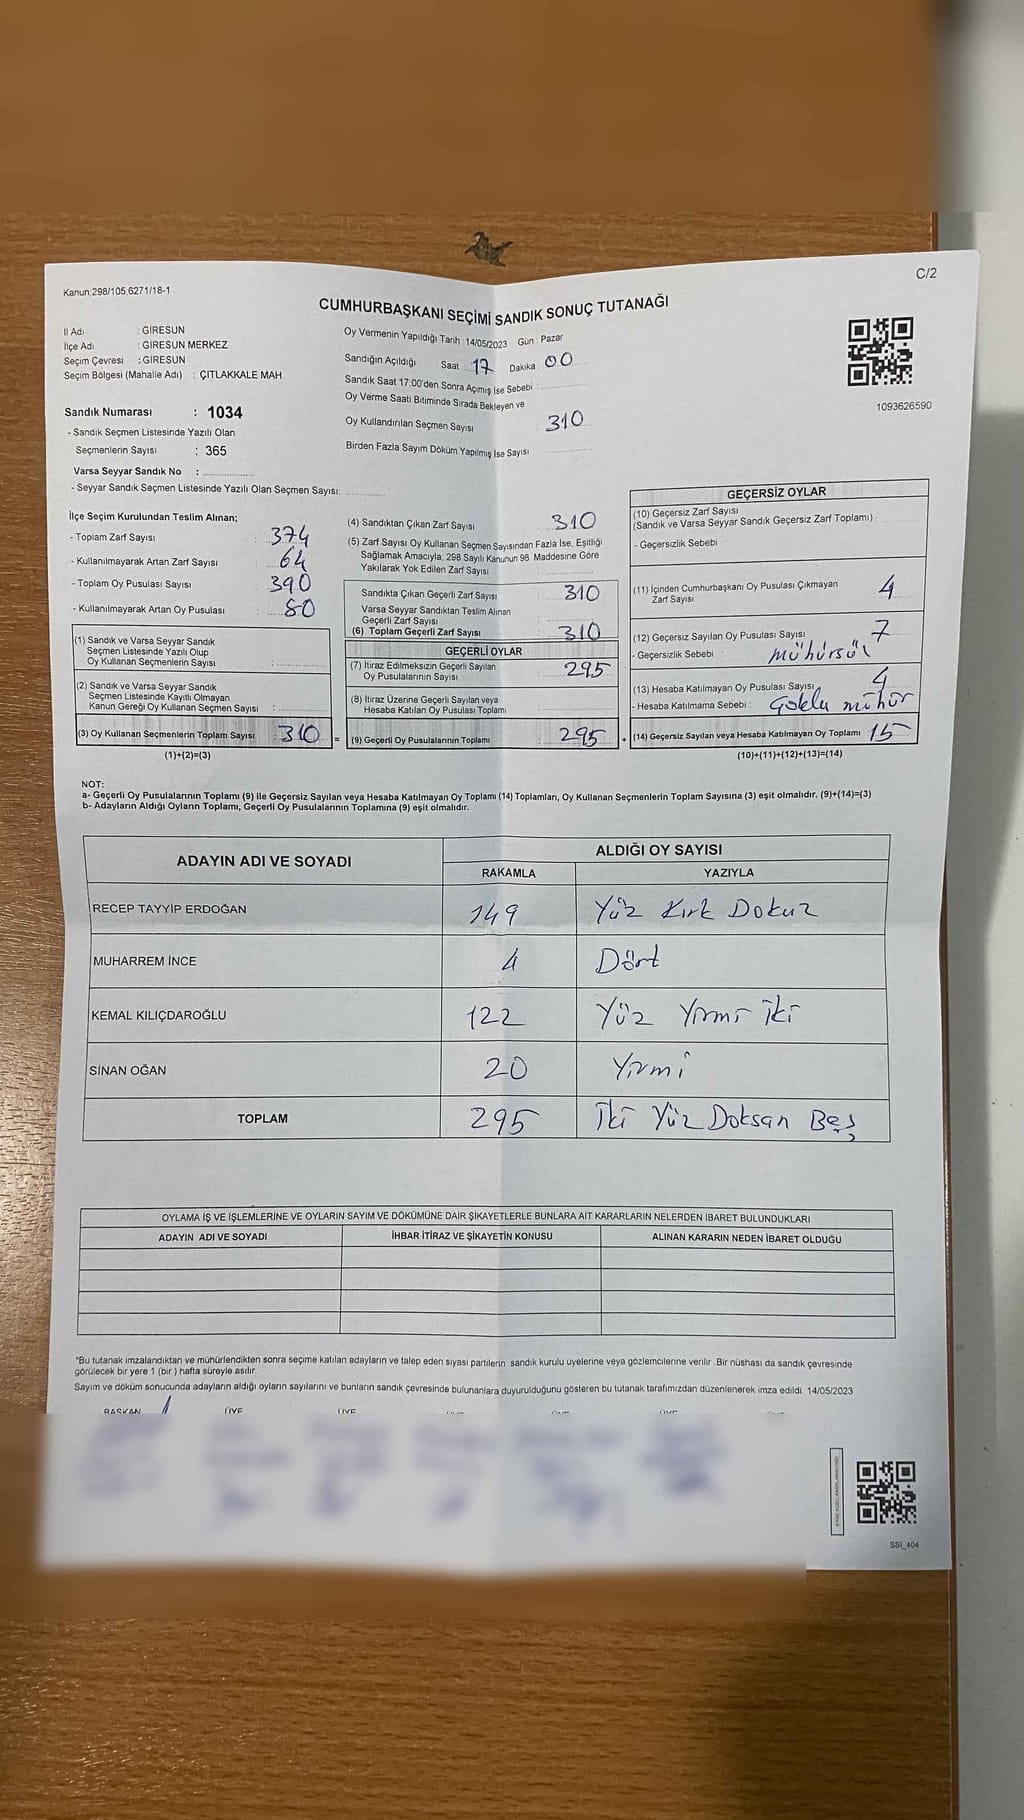 C/2
Kanun;298/105;6271/18-1
CUMHURBAŞKANI SEÇİMİ SANDIK SONUÇ TUTANAĞI
İl Adı : GİRESUN
İlçe Adı : GİRESUN MERKEZ
Seçim Çevresi : GİRESUN
Seçim Bölgesi (Mahalle Adı) : ÇITLAKKALE MAH.
Sandık Numarası : 1034
- Sandık Seçmen Listesinde Yazılı Olan
Seçmenlerin Sayısı : 365
Varsa Seyyar Sandık No :
- Seyyar Sandık Seçmen Listesinde Yazılı Olan Seçmen Sayısı:
Oy Vermenin Yapıldığı Tarih :14/05/2023 Gün : Pazar
Sandığın Açıldığı Saat : 17 Dakika 00
Sandık Saat 17:00'den Sonra Açımış İse Sebebi :
Oy Verme Saati Bitiminde Sırada Bekleyen ve
Oy Kullandırılan Seçmen Sayısı 310
Birden Fazla Sayım Döküm Yapılmış İse Sayısı
1093626590
İlçe Seçim Kurulundan Teslim Alınan;
- Toplam Zarf Sayısı : 374
- Kullanılmayarak Artan Zarf Sayısı : 64
- Toplam Oy Pusulası Sayısı : 390
- Kullanılmayarak Artan Oy Pusulası : 80
(1) Sandık ve Varsa Seyyar Sandık
Seçmen Listesinde Yazılı Olup
Oy Kullanan Seçmenlerin Sayısı :
(2) Sandık ve Varsa Seyyar Sandık
Seçmen Listesinde Kayıtlı Olmayan
Kanun Gereği Oy Kullanan Seçmen Sayısı :
(3) Oy Kullanan Seçmenlerin Toplam Sayısı : 310 =
(1)+(2)=(3)
(4) Sandıktan Çıkan Zarf Sayısı : 310
(5) Zarf Sayısı Oy Kullanan Seçmen Sayısından Fazla İse, Eşitliği
Sağlamak Amacıyla, 298 Sayılı Kanunun 98. Maddesine Göre
Yakılarak Yok Edilen Zarf Sayısı :
Sandıkta Çıkan Geçerli Zarf Sayısı : 310
Varsa Seyyar Sandıktan Teslim Alınan
Geçerli Zarf Sayısı :
(6) Toplam Geçerli Zarf Sayısı : 310
GEÇERLİ OYLAR
(7) İtiraz Edilmeksizin Geçerli Sayılan
Oy Pusulalarının Sayısı : 295
(8) İtiraz Üzerine Geçerli Sayılan veya
Hesaba Katılan Oy Pusulası Toplamı
(9) Geçerli Oy Pusulalarının Toplamı : 295 +
GEÇERSİZ OYLAR
(10) Geçersiz Zarf Sayısı
(Sandık ve Varsa Seyyar Sandık Geçersiz Zarf Toplamı) :
- Geçersizlik Sebebi :
(11) İçinden Cumhurbaşkanı Oy Pusulası Çıkmayan
Zarf Sayısı 4
(12) Geçersiz Sayılan Oy Pusulası Sayısı : 7
- Geçersizlik Sebebi : mühürsüz
(13) Hesaba Katılmayan Oy Pusulası Sayısı 4
- Hesaba Katılmama Sebebi : Çoklu mühür
(14) Geçersiz Sayılan veya Hesaba Katılmayan Oy Toplamı 15
(10)+(11)+(12)+(13)=(14)
NOT:
a- Geçerli Oy Pusulalarının Toplamı (9) ile Geçersiz Sayılan veya Hesaba Katılmayan Oy Toplamı (14) Toplamları, Oy Kullanan Seçmenlerin Toplam Sayısına (3) eşit olmalıdır. (9)+(14)=(3)
b- Adayların Aldığı Oyların Toplamı, Geçerli Oy Pusulalarının Toplamına (9) eşit olmalıdır.
ADAYIN ADI VE SOYADI ALDIĞI OY SAYISI
RAKAMLA YAZIYLA
RECEP TAYYİP ERDOĞAN 149 Yüz Kırk Dokuz
MUHARREM İNCE 4 Dört
KEMAL KILIÇDAROĞLU 122 Yüz Yirmi İki
SİNAN OĞAN 20 Yirmi
TOPLAM 295 İki Yüz Doksan Beş
OYLAMA İŞ VE İŞLEMLERİNE VE OYLARIN SAYIM VE DÖKÜMÜNE DAİR ŞİKAYETLERLE BUNLARA AİT KARARLARIN NELERDEN İBARET BULUNDUKLARI
ADAYIN ADI VE SOYADI İHBAR İTİRAZ VE ŞİKAYETİN KONUSU ALINAN KARARIN NEDEN İBARET OLDUĞU
*Bu tutanak imzalandıktan ve mühürlendikten sonra seçime katılan adayların ve talep eden siyasi partilerin sandık kurulu üyelerine veya gözlemcilerine verilir .Bir nüshası da sandık çevresinde
görülecek bir yere 1 (bir ) hafta süreyle asılır.
Sayım ve döküm sonucunda adayların aldığı oyların sayılarını ve bunların sandık çevresinde bulunanlara duyurulduğunu gösteren bu tutanak tarafımızdan düzenlenerek imza edildi. 14/05/2023
BAŞKAN ÜYE ÜYE
SSİ_404